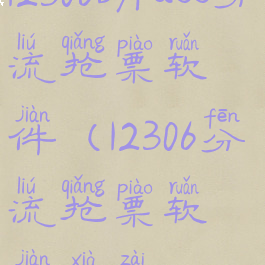 liú qiǎng piào ruǎn
流抢票软
jiàn fēn
件（12306分
liú qiǎng piào ruǎn
流抢票软
jiàn xià zài